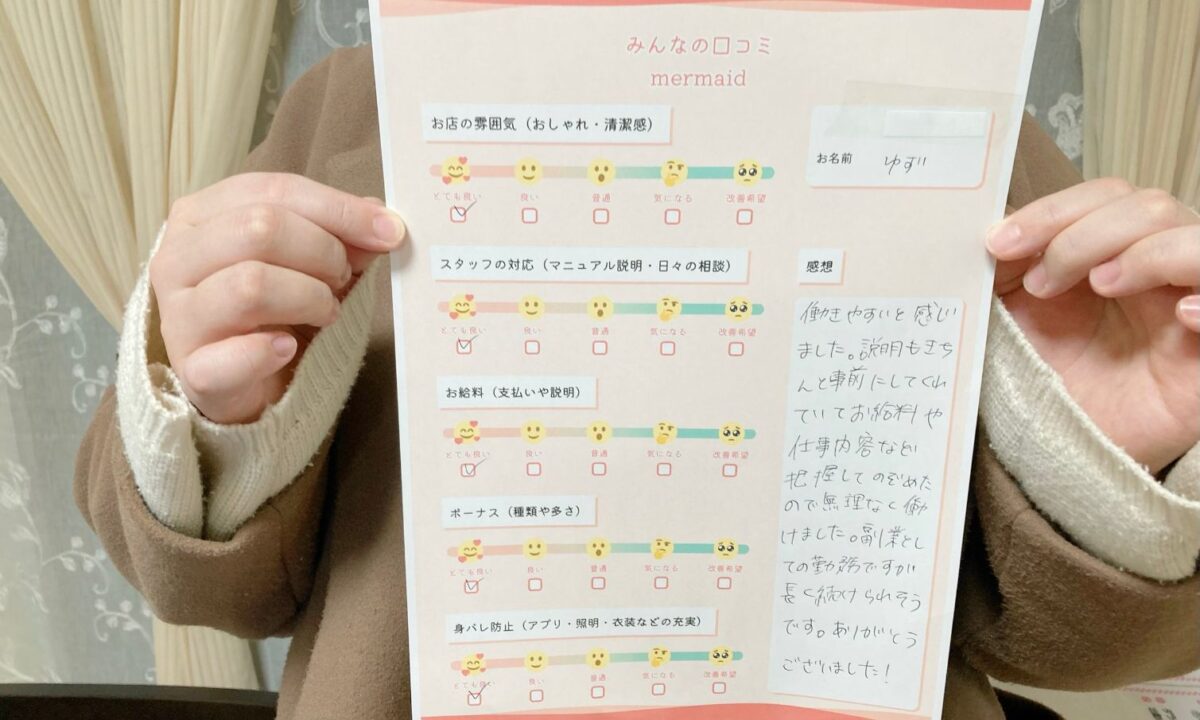 みんなの口コミ
mermaid
お店の雰囲気（おしゃれ・清潔感）
とても良い 良い 普通 気になる 改善希望
スタッフの対応（マニュアル説明・日々の相談）
とても良い 良い 普通 気になる 改善希望
お給料（支払いや説明）
とても良い 良い 普通 気になる 改善希望
ボーナス（種類や多さ）
とても良い 良い 普通 気になる 改善希望
身バレ防止（アプリ・照明・衣装などの充実）
とても良い 良い 普通 気になる 改善希望
お名前 ゆず
感想
働きやすいと感じ
ました。説明もきち
んと事前にしてくれ
ていてお給料や
仕事内容など
把握してのぞめた
ので無理なく働
けました。副業とし
ての勤務ですが
長く続けられそう
です。ありがとう
ございました！